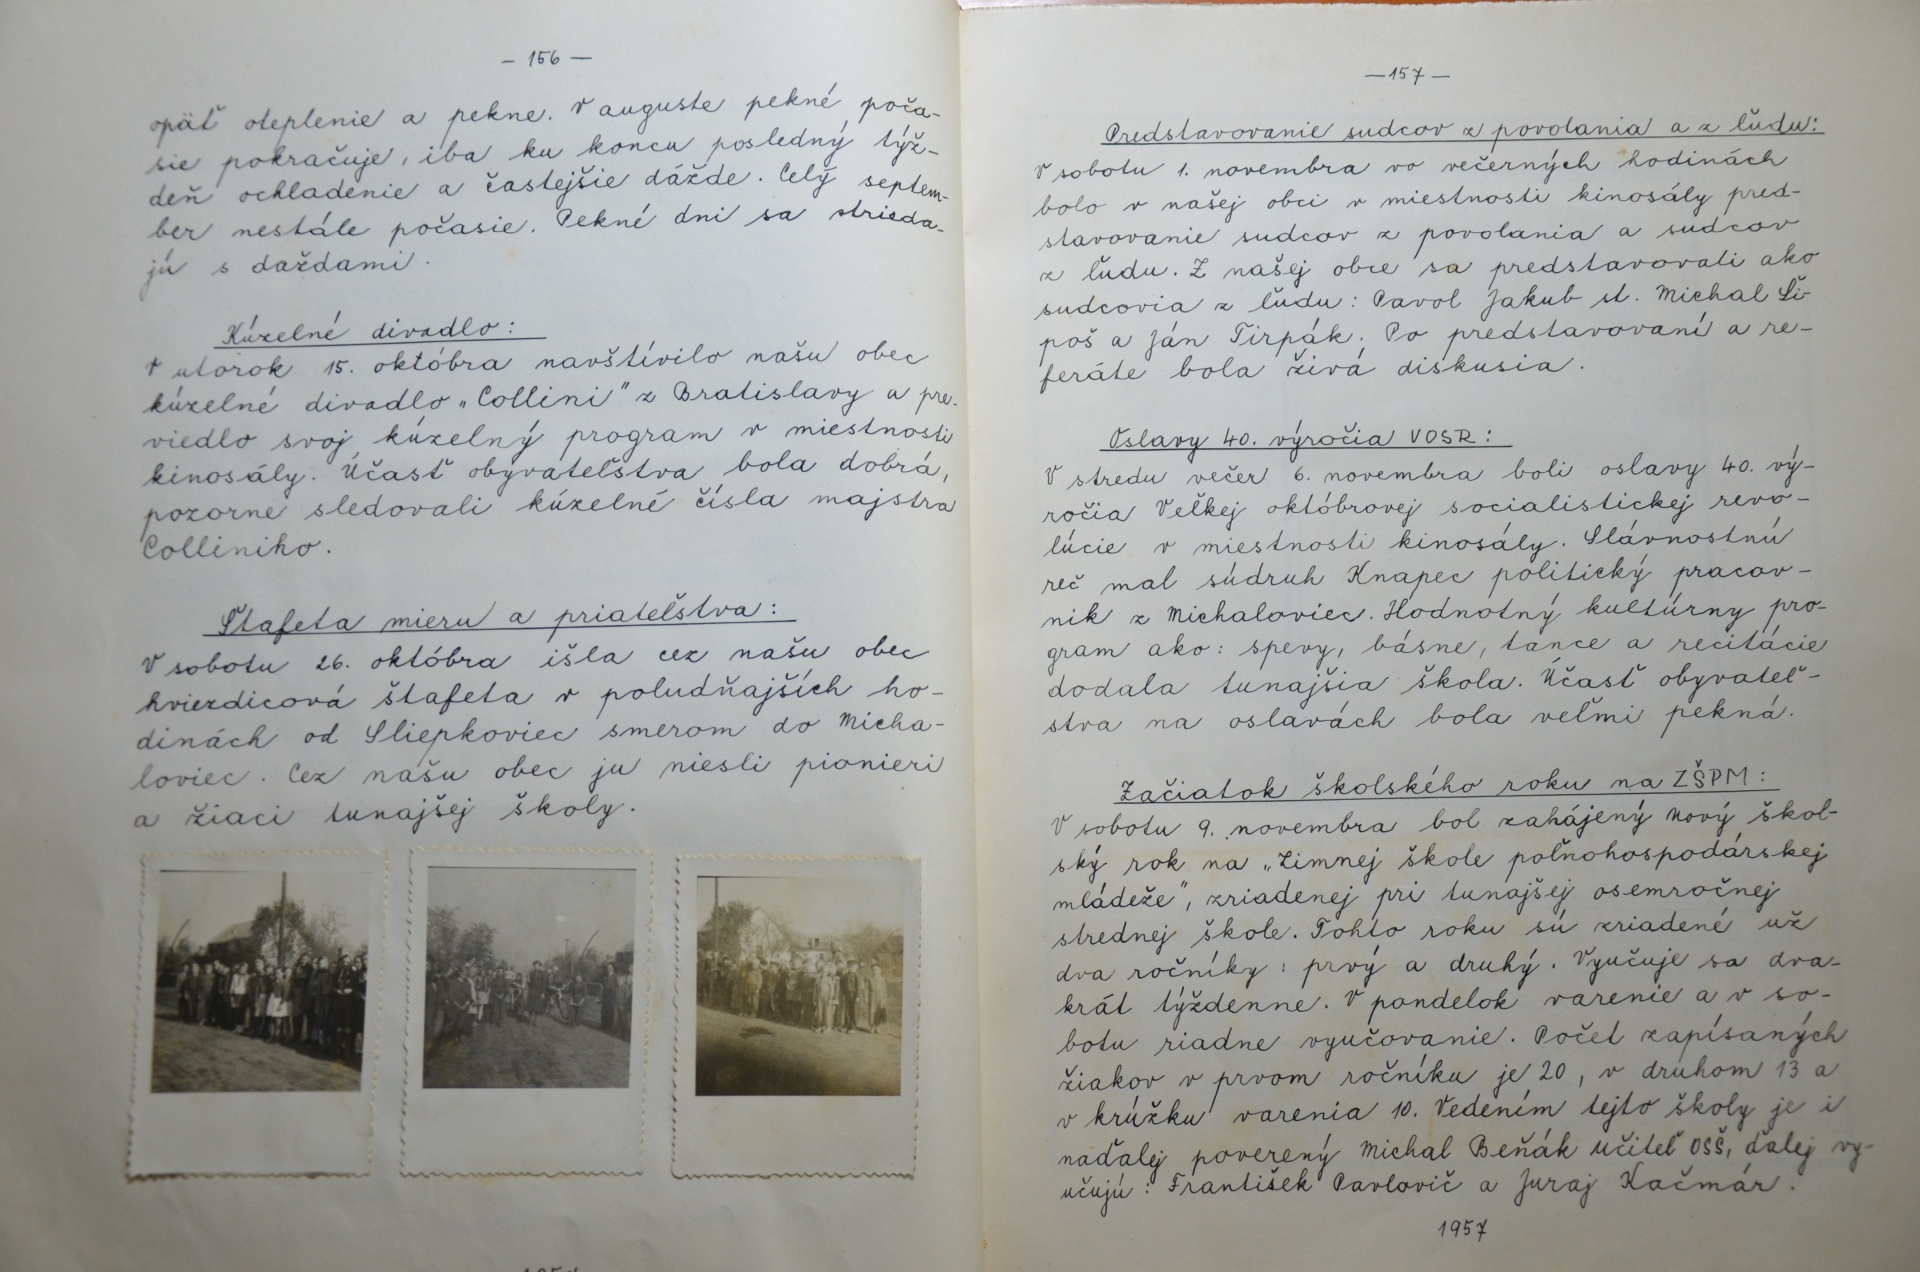 – 156 –
opäť oteplenie a pekne. V auguste pekné poča-
sie pokračuje, iba ku koncu posledný týž-
deň ochladenie a častejšie dážde. Celý septem-
ber nestále počasie. Pekné dni sa strieda-
jú s daždami.
Kúzelné divadlo:
V utorok 15. októbra navštívilo našu obec
kúzelné divadlo „Collini" z Bratislavy a pre-
viedlo svoj kúzelný program v miestnosti
kinosály. Účasť obyvateľstva bola dobrá,
pozorne sledovali kúzelné čísla majstra
Colliniho.
Štafeta mieru a priateľstva:
V sobotu 26. októbra išla cez našu obec
hviezdicová štafeta v poludňajších ho-
dinách od Sliepkoviec smerom do Micha-
loviec. Cez našu obec ju niesli pionieri
a žiaci tunajšej školy.
– 157 –
Predstavovanie sudcov z povolania a z ľudu:
V sobotu 1. novembra vo večerných hodinách
bolo v našej obci v miestnosti kinosály pred-
stavovanie sudcov z povolania a sudcov
z ľudu. Z našej obce sa predstavovali ako
sudcovia z ľudu: Pavol Jakub st. Michal Ši-
poš a Ján Tirpák. Po predstavovaní a re-
feráte bola živá diskusia.
Oslavy 40. výročia VOSR:
V stredu večer 6. novembra boli oslavy 40. vý-
ročia Veľkej októbrovej socialistickej revo-
lúcie v miestnosti kinosály. Slávnostnú
reč mal súdruh Knapec politický pracov-
nik z Michaloviec. Hodnotný kultúrny pro-
gram ako: spevy, básne, tance a recitácie
dodala tunajšia škola. Účasť obyvateľ-
stva na oslavách bola veľmi pekná.
Začiatok školského roku na ZŠPM:
V sobotu 9. novembra bol zahájený nový škol-
ský rok na „Zimnej škole poľnohospodárskej
mládeže", zriadenej pri tunajšej osemročnej
strednej škole. Tohto roku sú zriadené už
dva ročníky: prvý a druhý. Vyučuje sa dva-
krát týždenne. V pondelok varenie a v so-
botu riadne vyučovanie. Počet zapísaných
žiakov v prvom ročníku je 20, v druhom 13 a
v krúžku varenia 10. Vedením tejto školy je i
naďalej poverený Michal Beňák učiteľ OSŠ, ďalej vy-
učujú: František Pavlovič a Juraj Kačmár.
1957